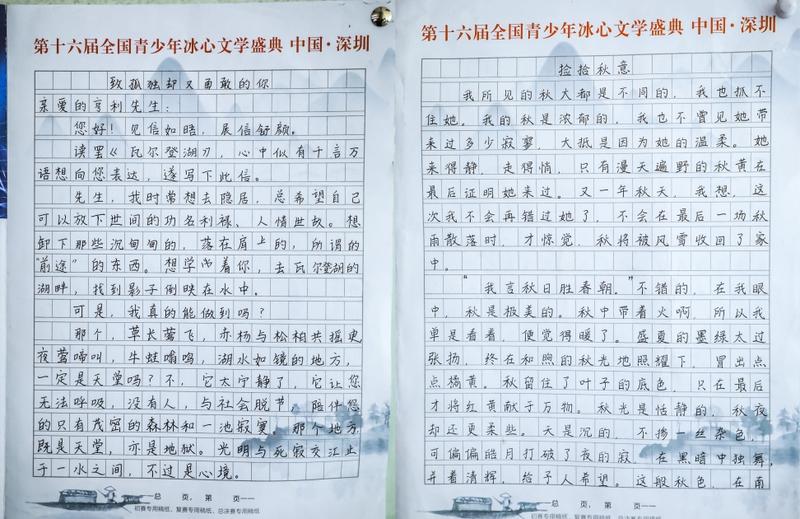 第十六届全国青少年冰心文学盛典 中国·深圳
致孤独却又勇敢的你
亲爱的亨利先生:
您好!见信如晤,展信舒颜。
读罢《瓦尔登湖》,心中似有千言万
语想向您表达,遂写下此信。
先生,我时常想去隐居,总希望自己
可以放下世间的功名利禄、人情世故。想
卸下那些沉甸甸的,落在肩上的,所谓的
“前途”的东西。想学着你,去瓦尔登湖的
湖畔,找到影子倒映在水中。
可是,我真的能做到吗?
那个,草长莺飞,赤杨与松柏共摇曳
夜莺啼叫,牛蛙嗡鸣,湖水如镜的地方,
一定是天堂吗?不,它太宁静了,它让您
无法呼吸,没有人,与社会脱节,陪伴您
的只有茂密的森林和一池寂寥,那个地方
既是天堂,亦是地狱。光明与死寂交江止
于一水之间,不过是心境。
—总 页,第 页——
初赛专用稿纸、复赛专用稿纸、总决赛专用稿纸
第十六届全国青少年冰心文学盛典 中国·深圳
捡拾秋意
我所见的秋大都是不同的,我也抓不
住她。我的秋是浓郁的,我也不曾见她带
来过多少寂寥,大抵是因为她的温柔。她
来得静,走得悄,只有漫天遍野的秋黄在
最后证明她来过。又一年秋天,我想,这
次我不会再错过她了,不会在最后一场秋
雨散落时,才惊觉,秋将被风雪收回了家
中。
“我言秋日胜春朝。”不错的,在我眼
中,秋是极美的。秋中带着火啊,所以我
单是看着,便觉得暖了。盛夏的墨绿太过
张扬,终在和煦的秋光地照耀下,冒出点
点橘黄。秋留住了叶子的底色,只在最后
才将红黄献于万物。秋光是恬静的,秋夜
却还更柔些。天是沉的,不掺一丝杂色,
可偏偏皓月打破了夜的寂,在黑暗中独舞,
并着清辉,给予人希望。这般秋色,在南
—总 页,第 页——
初赛专用稿纸、复赛专用稿纸、总决赛专用稿纸